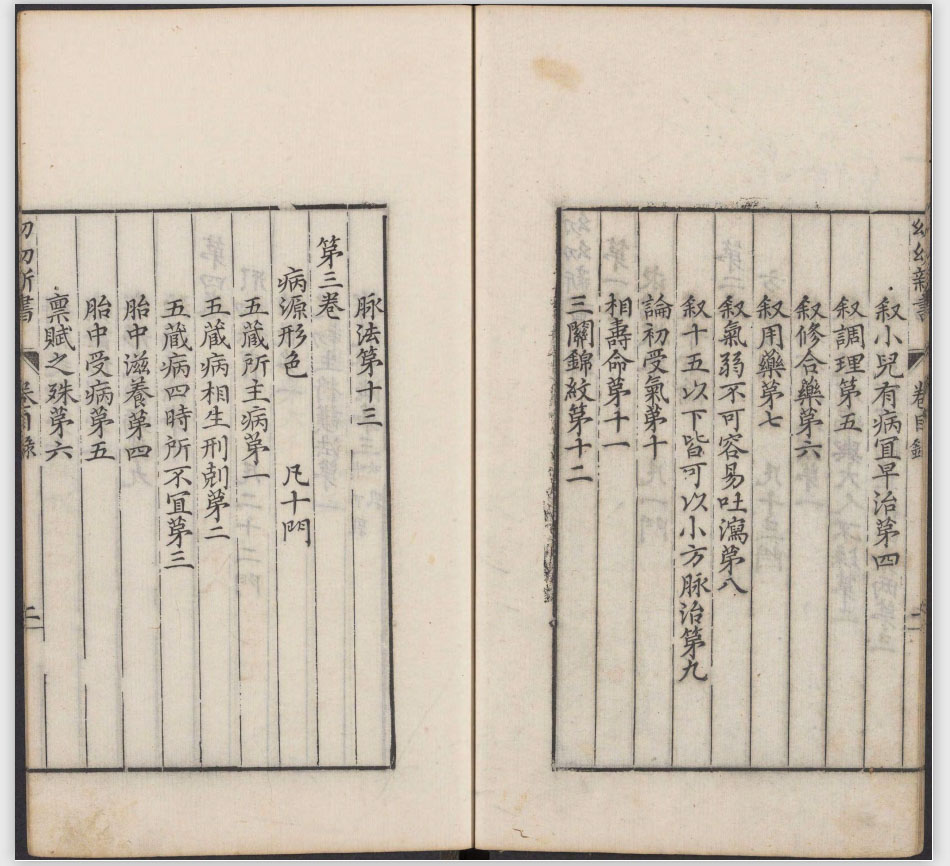 幼幼新書 卷目錄 二
叙小兒有病冝早治第四
叙調理第五
叙修合藥第六
叙用藥第七
叙氣弱不可容易吐瀉第八
叙十五以下皆可以小方脉治第九
論初受氣第十
相壽命第十一
三關錦紋第十二
脉法第十三
第三卷
病源形色 凡十門
五蔵所主病第一
五蔵病相生刑剋第二
五蔵病四時所不冝第三
胎中滋養第四
胎中受病第五
禀賦之殊第六
幼幼新書 卷目錄 二